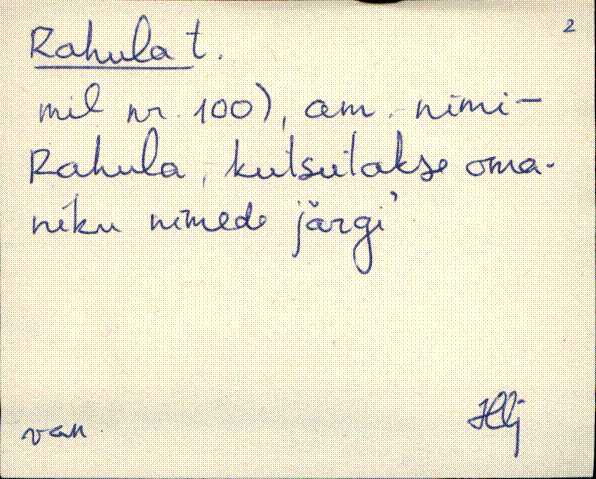 2
Rahula t.
mil nr. 100), am. nimi -
Rahula, kutsutakse oma-
niku nimede järgi
van.
Hlj